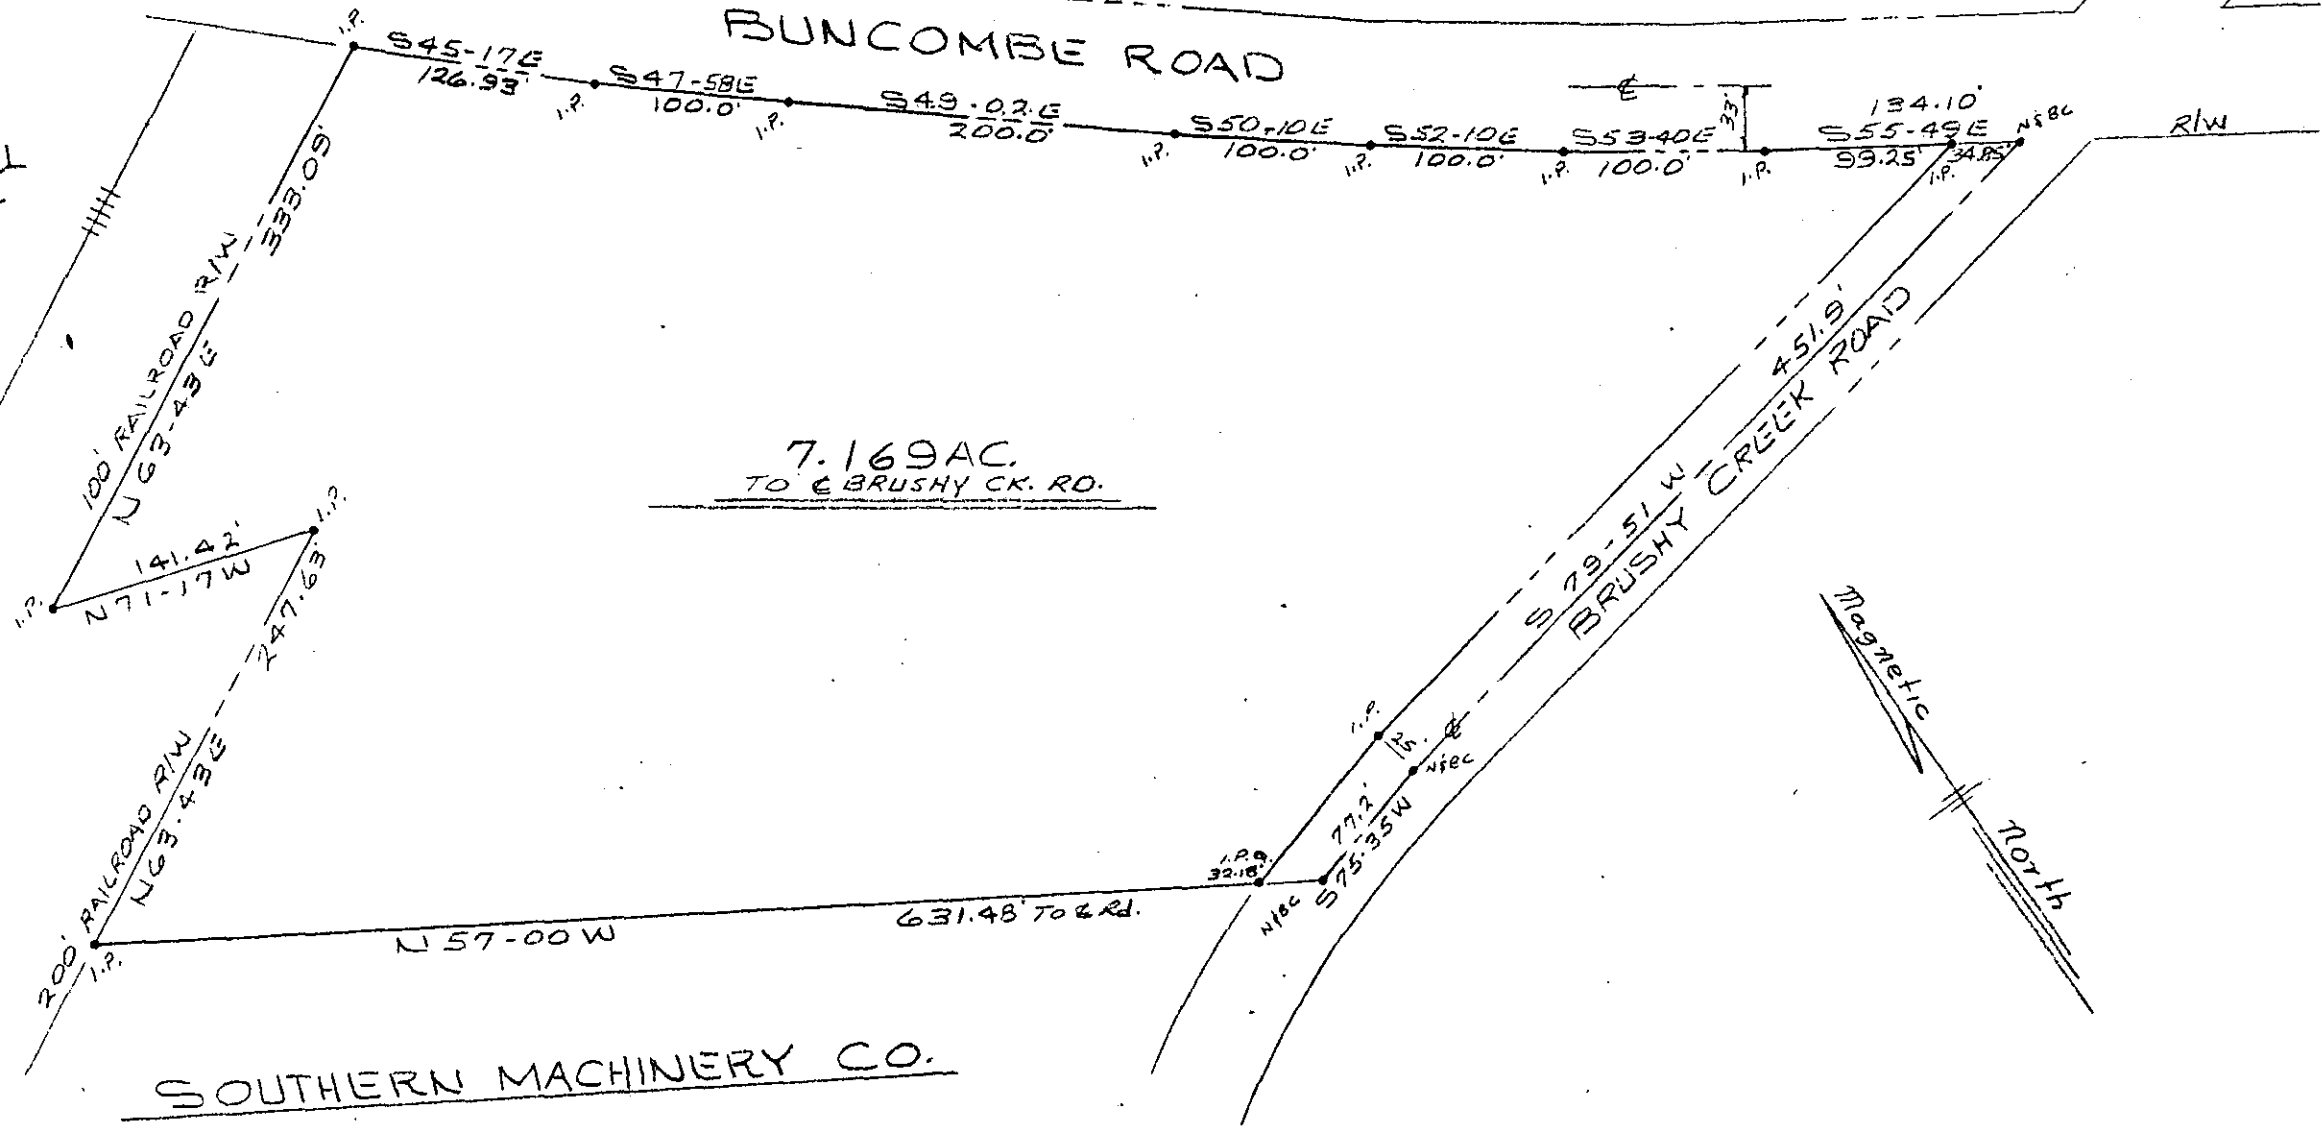 BUNCOMBE ROAD
I.P.
S45-17E
126.93'
I.P.
S47-58E
100.0'
I.P.
S49-02E
200.0'
I.P.
S50-10E
100.0'
I.P.
S52-10E
100.0'
I.P.
S53-40E
100.0'
℄
33'
I.P.
134.10'
S55-49E
99.25'
34.85'
I.P.
N&BC
R/W
333.09'
100' RAILROAD R/W
N63-43E
I.P.
141.42'
N71-17W
I.P.
247.63'
200' RAILROAD R/W
N63-43E
I.P.
7.169AC.
TO ℄ BRUSHY CK. RD.
451.9'
S 79-51 W
BRUSHY CREEK ROAD
I.P.
25'
℄
N&BC
77.2'
S75-35W
I.P.
32.18'
N&BC
N57-00W
631.48' TO ℄ Rd.
Magnetic
North
SOUTHERN MACHINERY CO.